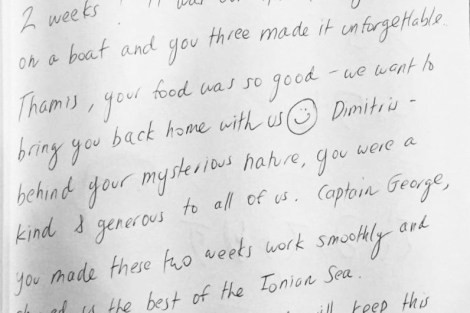 2 weeks ! It was our
on a boat and you three made it unforgettable.
Thamis, your food was so good - we want to
bring you back home with us ☺ Dimitris -
behind your mysterious nature, you were a
kind & generous to all of us. Captain George,
you made these two weeks work smoothly and
us the best of the Ionian Sea.
will keep this